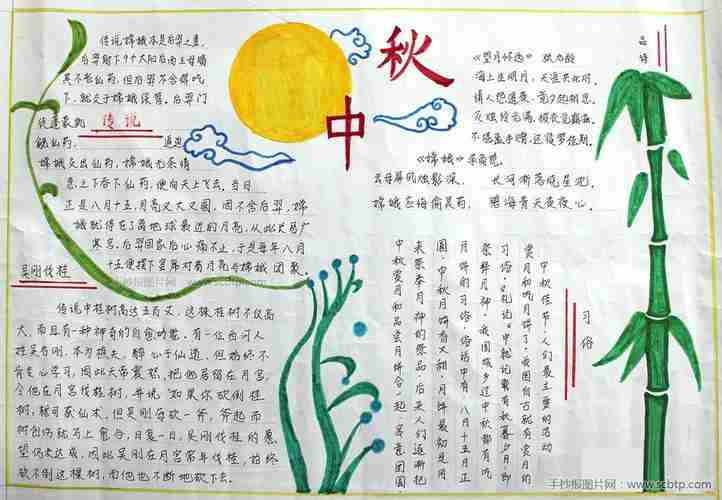 中秋
传说嫦娥本是后羿之妻,
后羿射下9个太阳后西王母赐
其不老仙药,但后羿不舍得吃
下,就交于嫦娥保管。后羿门
徒蓬蒙觊
传说
觎仙药,
逼迫
嫦娥交出仙药,嫦娥无奈情
急之下吞下仙药,便向天上飞去,当日
正是八月十五,月亮又大又圆,因不舍后羿,嫦
娥就停在了离地球最近的月亮,从此长居广
寒宫,后羿回家后心痛不止,于是每年八月
十五便摆下宴席对着月亮与嫦娥团聚。
吴刚伐桂
传说中桂树高达五百丈,这株桂树不仅高
大,而且有一种神奇的自愈功能。有一位西河人
姓吴名刚,本为樵夫,醉心于仙道,但始终不
肯专心学习,因此天帝震怒,把他居留在月宫,
令他在月宫伐桂树,并说:如果你砍倒桂
树,就可获仙术,但吴刚每砍一斧,斧起而
树创伤就马上愈合,日复一日,吴刚伐桂的愿
望仍未达成,因此吴刚在月宫常年伐桂,始终
砍不倒这棵树,而他也不断地砍下去。
品诗
《望月怀远》 张九龄
海上生明月,天涯共此时。
情人怨遥夜,竟夕起相思。
灭烛怜光满,披衣觉露滋。
不堪盈手赠,还寝梦佳期。
《嫦娥》李商隐
云母屏风烛影深, 长河渐落晓星沉。
嫦娥应悔偷灵药, 碧海青天夜夜心。
习俗
中秋佳节,人们最主要的活动
赏月和吃月饼了。我国自古就有赏月的
习俗,《礼记》中就记载有秋暮夕月,即
祭拜月神。我国城乡过中秋都有吃
月饼的习俗,俗话中有:八月十五月正
圆,中秋月饼香又甜,月饼最初是用
来祭奉月神的祭品,后来人们逐渐把
中秋赏月和品尝月饼合一起,寓意团圆
手抄报图片网 www.scbtp.com
手抄报图片网:www.scbtp.com